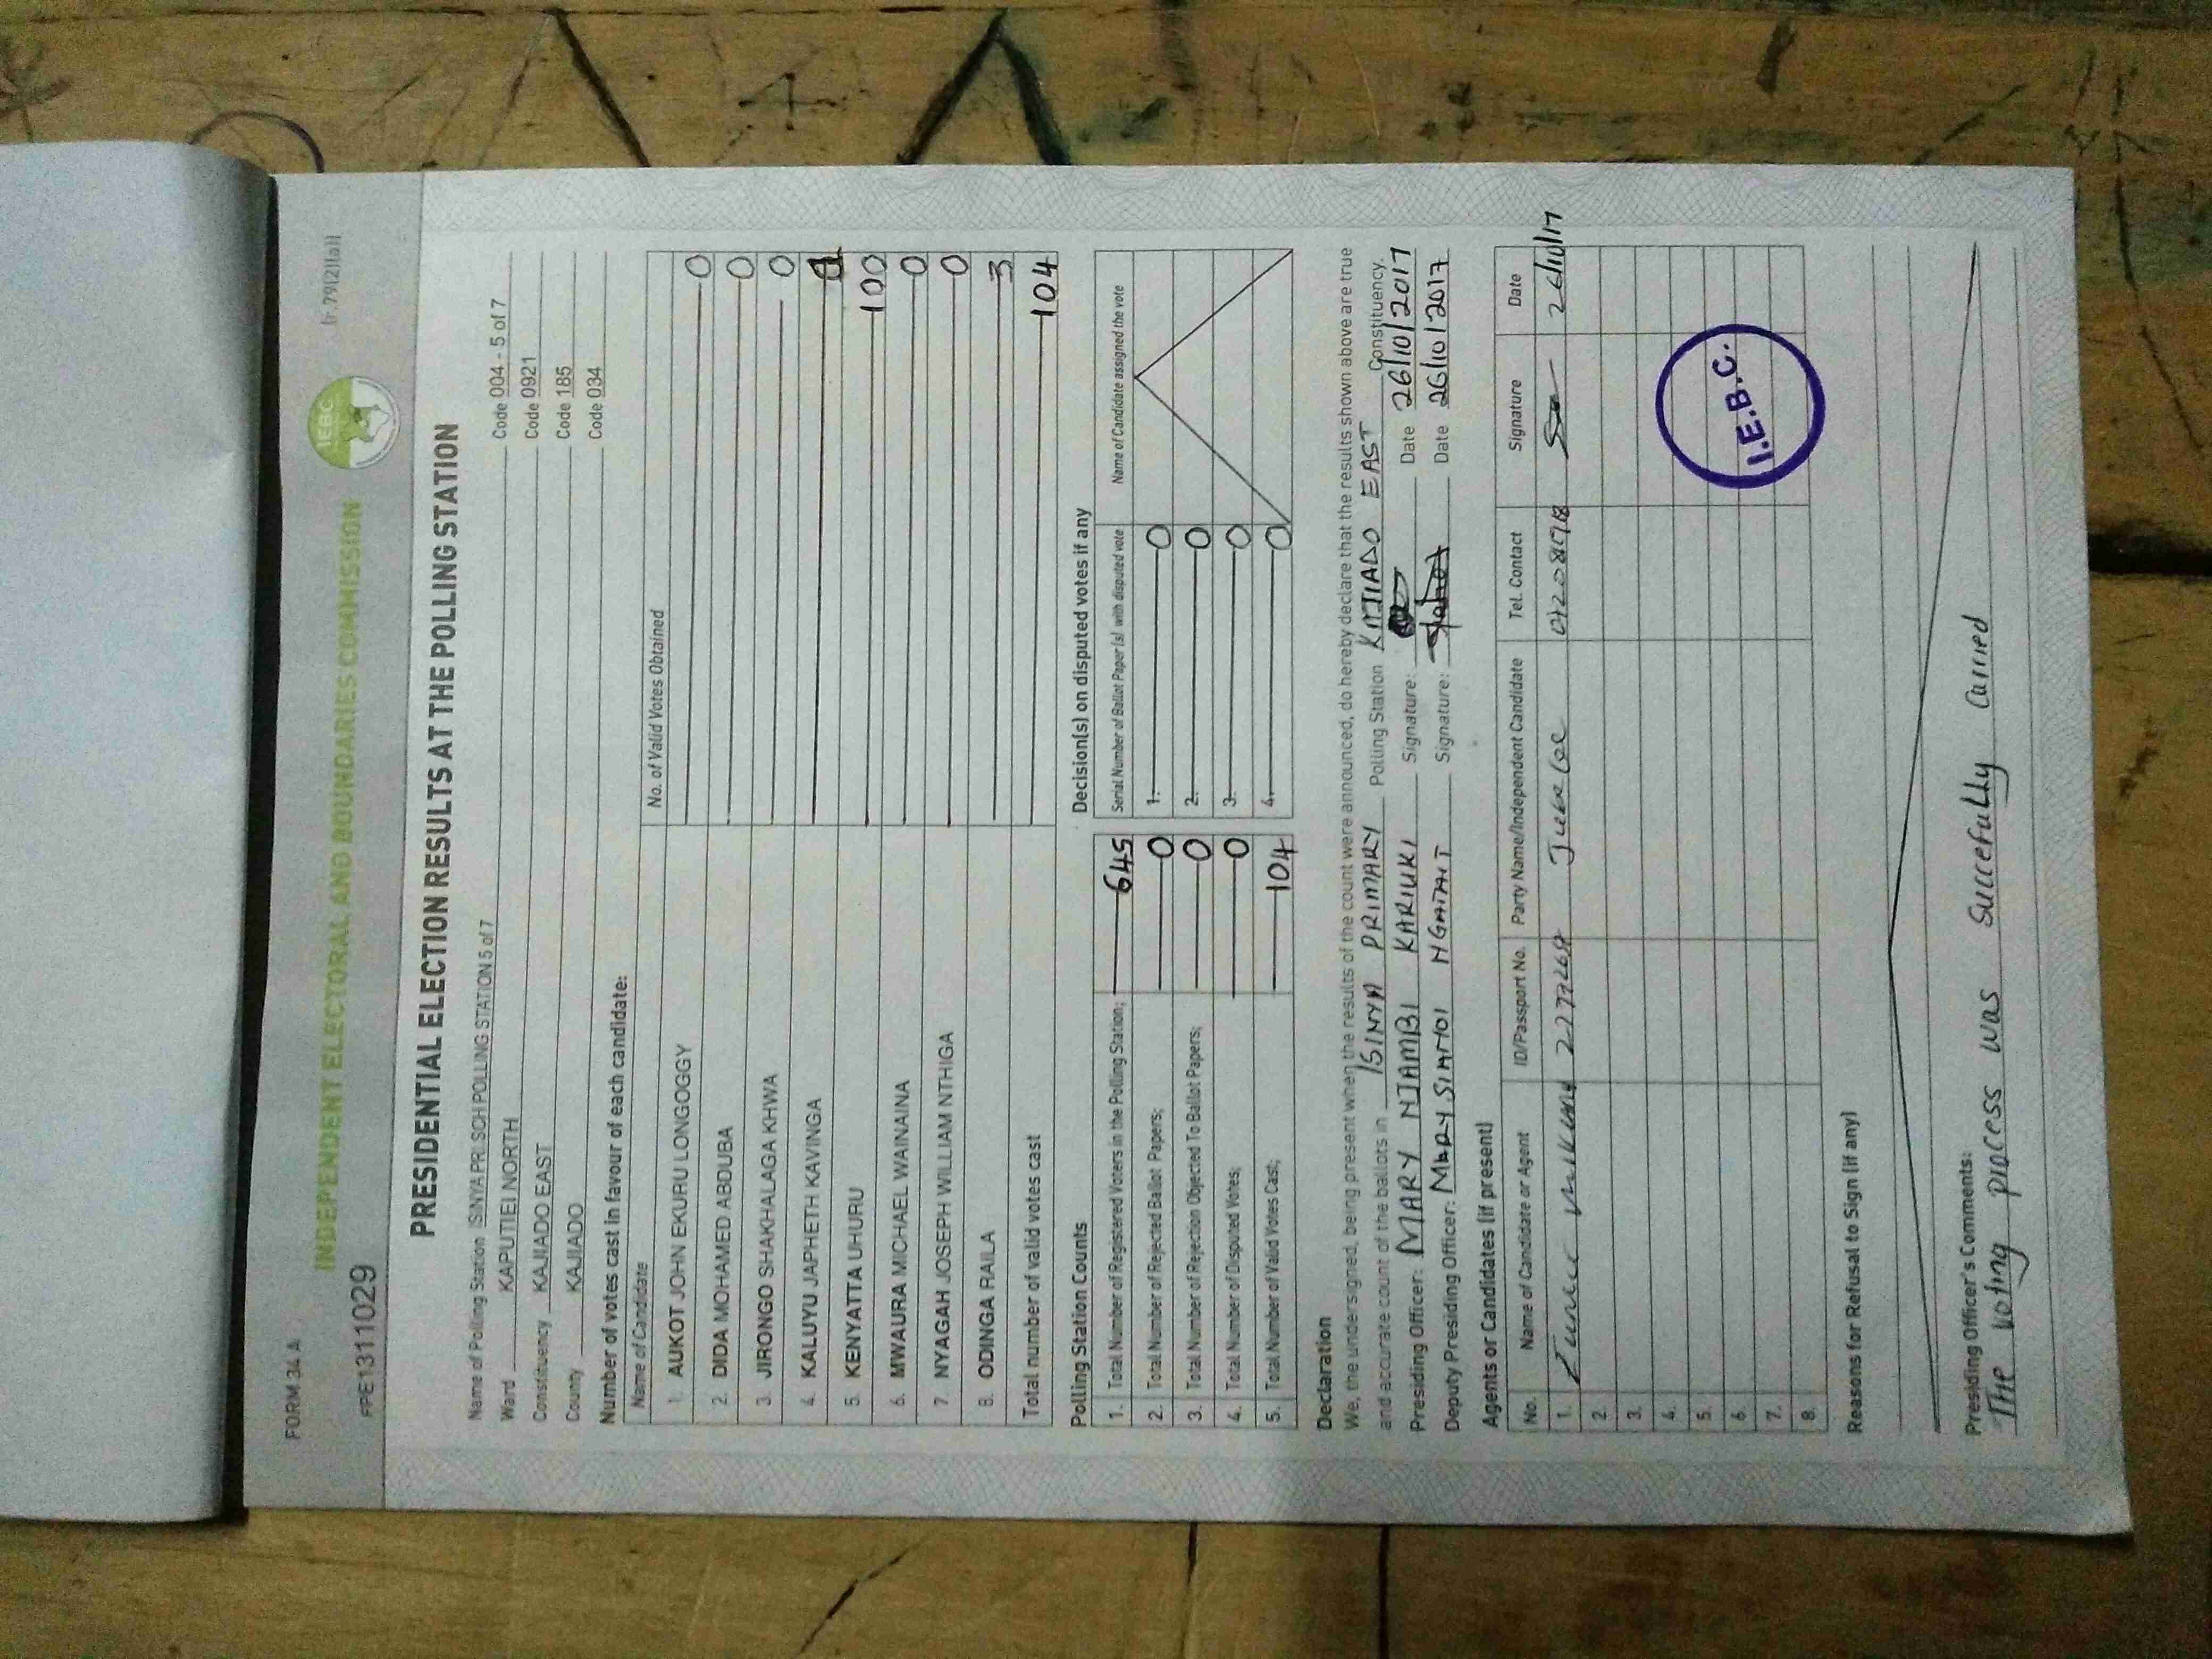 FORM 34 A
(r.79(2)(a))
INDEPENDENT ELECTORAL AND BOUNDARIES COMMISSION
IEBC
PPE1311029
PRESIDENTIAL ELECTION RESULTS AT THE POLLING STATION
Name of Polling Station ISINYA PRI.SCH POLLING STATION 5 of 7 Code 004 - 5 of 7
Ward KAPUTIEI NORTH Code 0921
Constituency KAJIADO EAST Code 185
County KAJIADO Code 034
Number of votes cast in favour of each candidate:
Name of Candidate No. of Valid Votes Obtained
1. AUKOT JOHN EKURU LONGOGGY 0
2. DIDA MOHAMED ABDUBA 0
3. JIRONGO SHAKHALAGA KHWA 0
4. KALUYU JAPHETH KAVINGA 1
5. KENYATTA UHURU 100
6. MWAURA MICHAEL WAINAINA 0
7. NYAGAH JOSEPH WILLIAM NTHIGA 0
8. ODINGA RAILA 3
Total number of valid votes cast 104
Polling Station Counts
1. Total Number of Registered Voters in the Polling Station; 645
2. Total Number of Rejected Ballot Papers; 0
3. Total Number of Rejection Objected To Ballot Papers; 0
4. Total Number of Disputed Votes; 0
5. Total Number of Valid Votes Cast; 104
Decision(s) on disputed votes if any
Serial Number of Ballot Paper (s) with disputed vote Name of Candidate assigned the vote
1. 0
2. 0
3. 0
4. 0
Declaration
We, the undersigned, being present when the results of the count were announced, do hereby declare that the results shown above are true
and accurate count of the ballots in ISINYA PRIMARY Polling Station KAJIADO EAST Constituency.
Presiding Officer: MARY NJAMBI KARIUKI Signature: Date 26/10/2017
Deputy Presiding Officer: MARY Signature: Date 26/10/2017
Agents or Candidates (if present)
No. Name of Candidate or Agent ID/Passport No. Party Name/Independent Candidate Tel. Contact Signature Date
1. Jubilee 26/10/17
2.
3.
4.
5.
6.
7.
8.
I.E.B.C.
Reasons for Refusal to Sign (if any)
Presiding Officer's Comments:
The voting process was sucefully carried